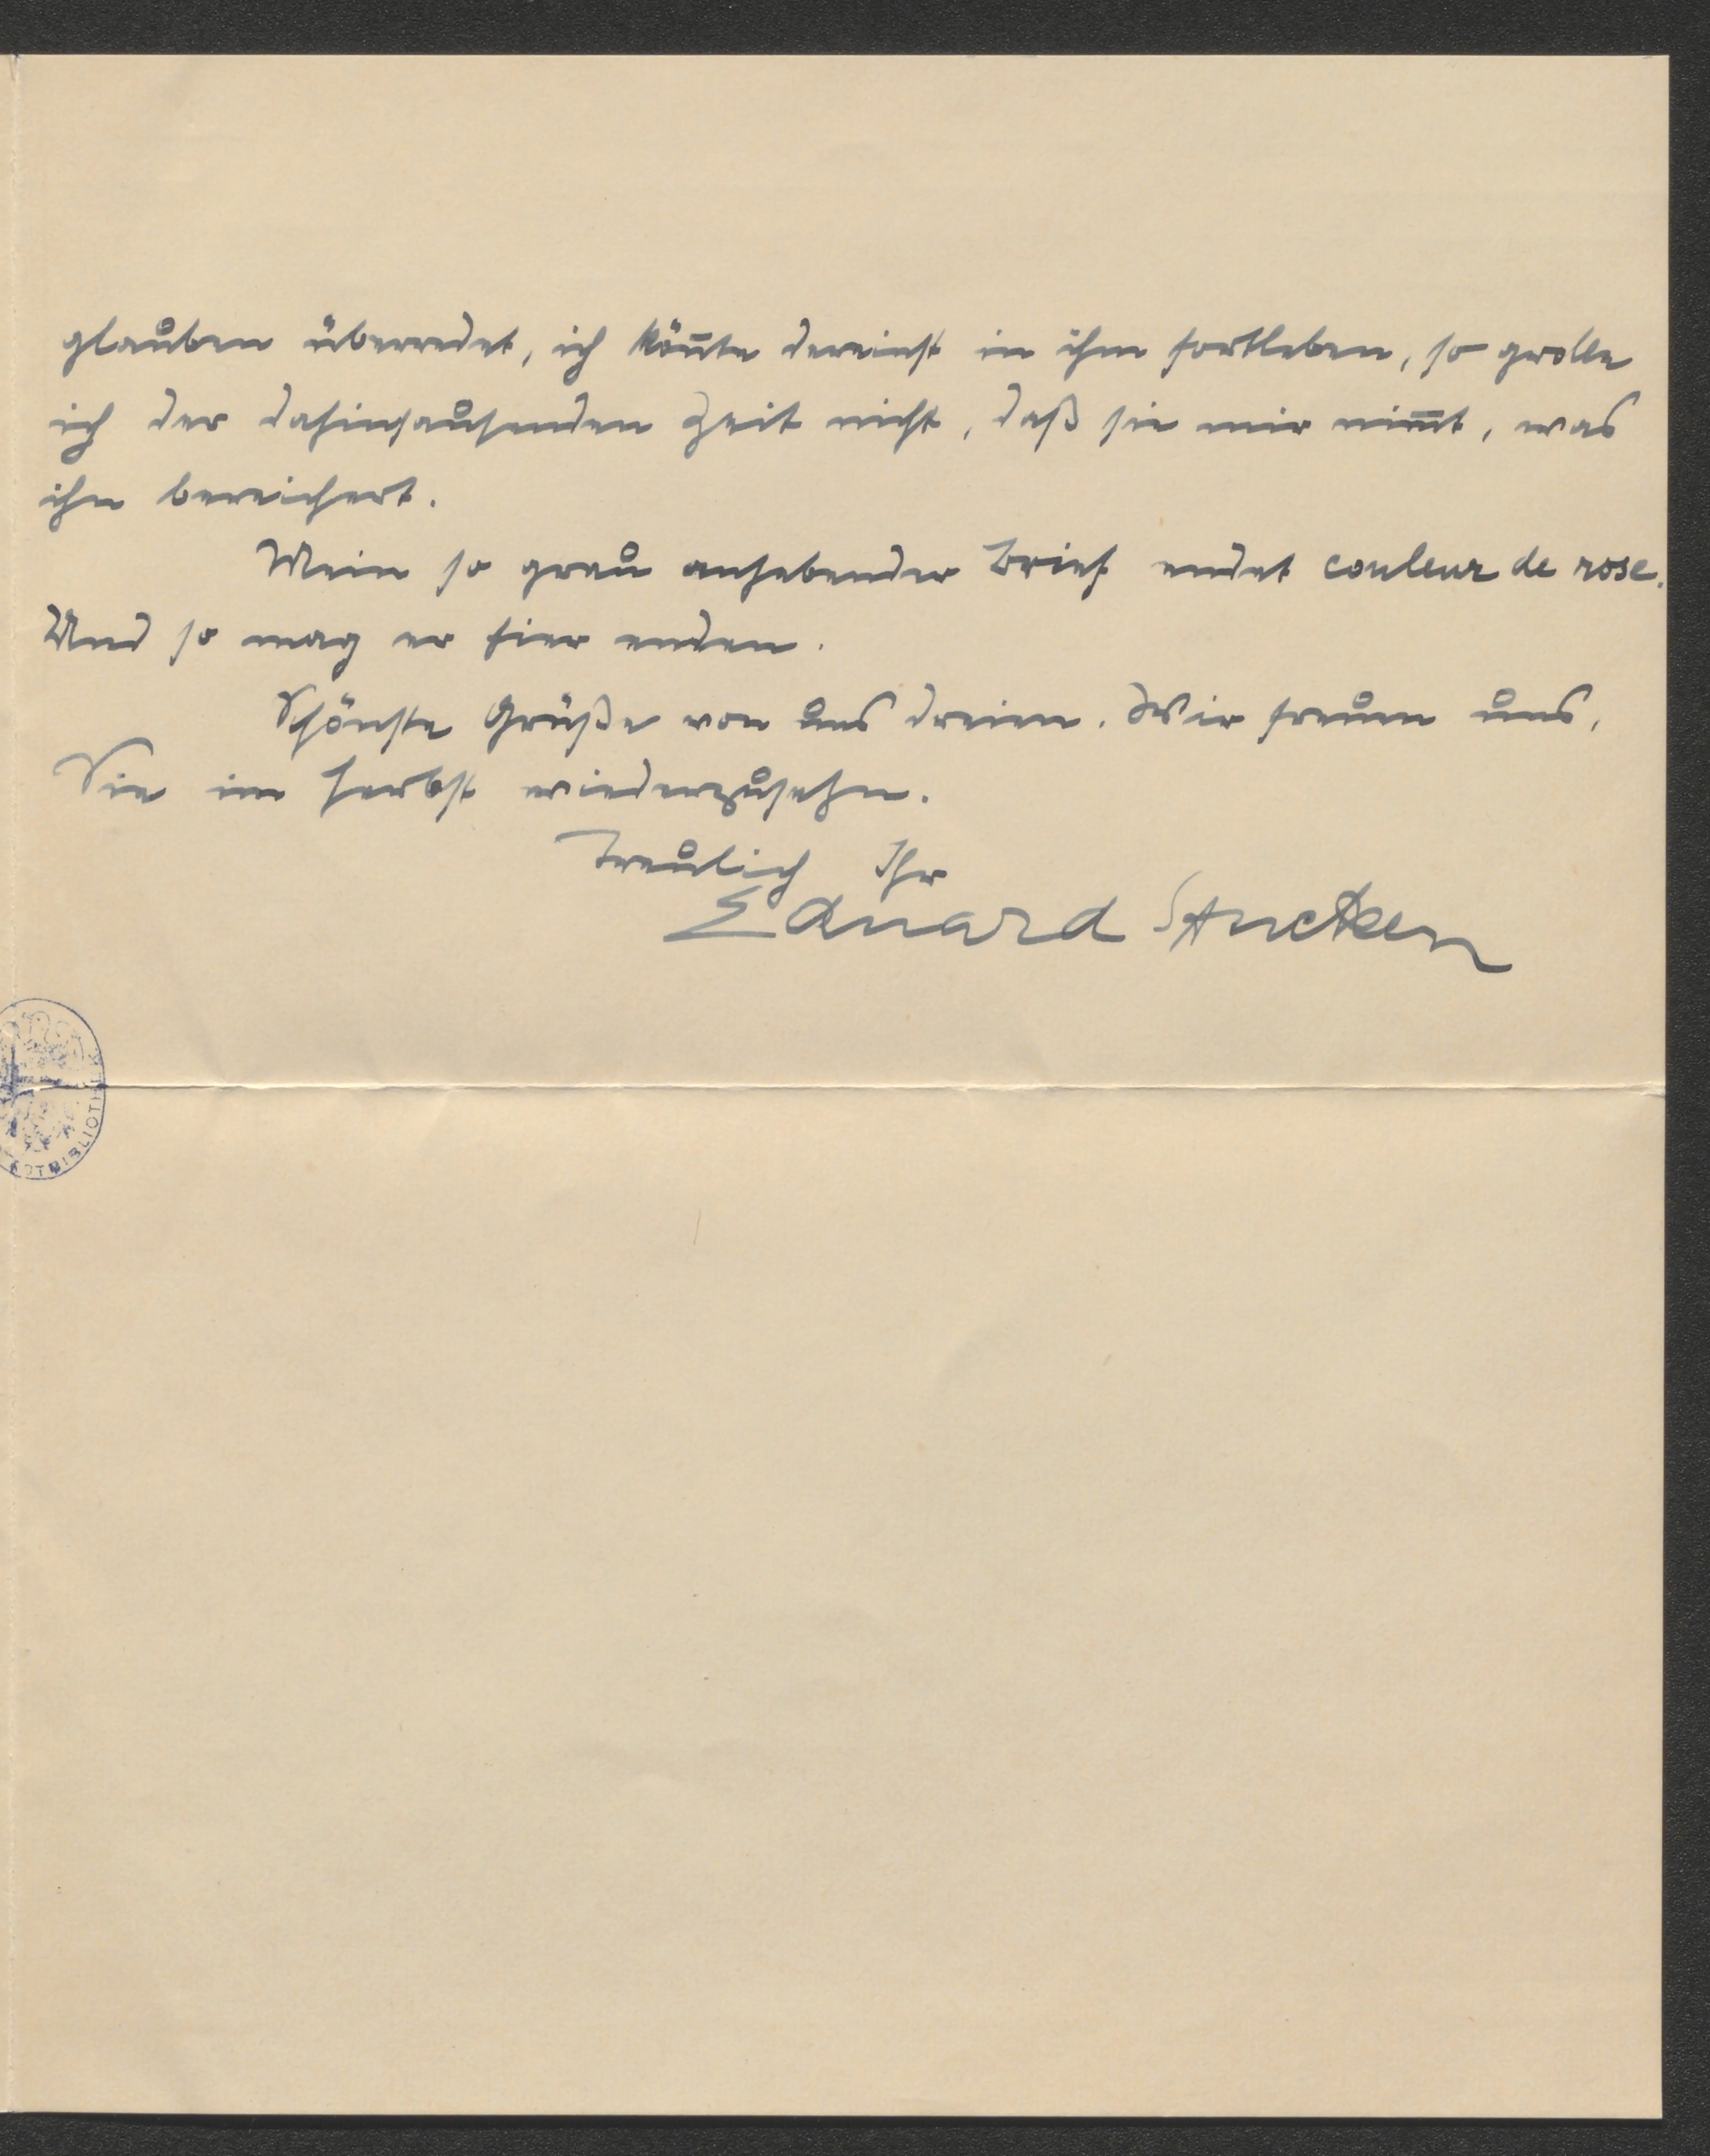 glauben überredet, ich kön̅te dereinst in ihm fortleben, so grolle
ich der dahinsausenden Zeit nicht, daß sie mir nim̅t, was
ihn bereichert.
Mein so grau anhebender Brief endet couleur de rose.
Und so mag er hier enden.
Schönste Grüße von uns dreien. Wir freuen uns,
Sie im Herbst wiederzusehn.
Treulich Ihr
Eduard Stucken